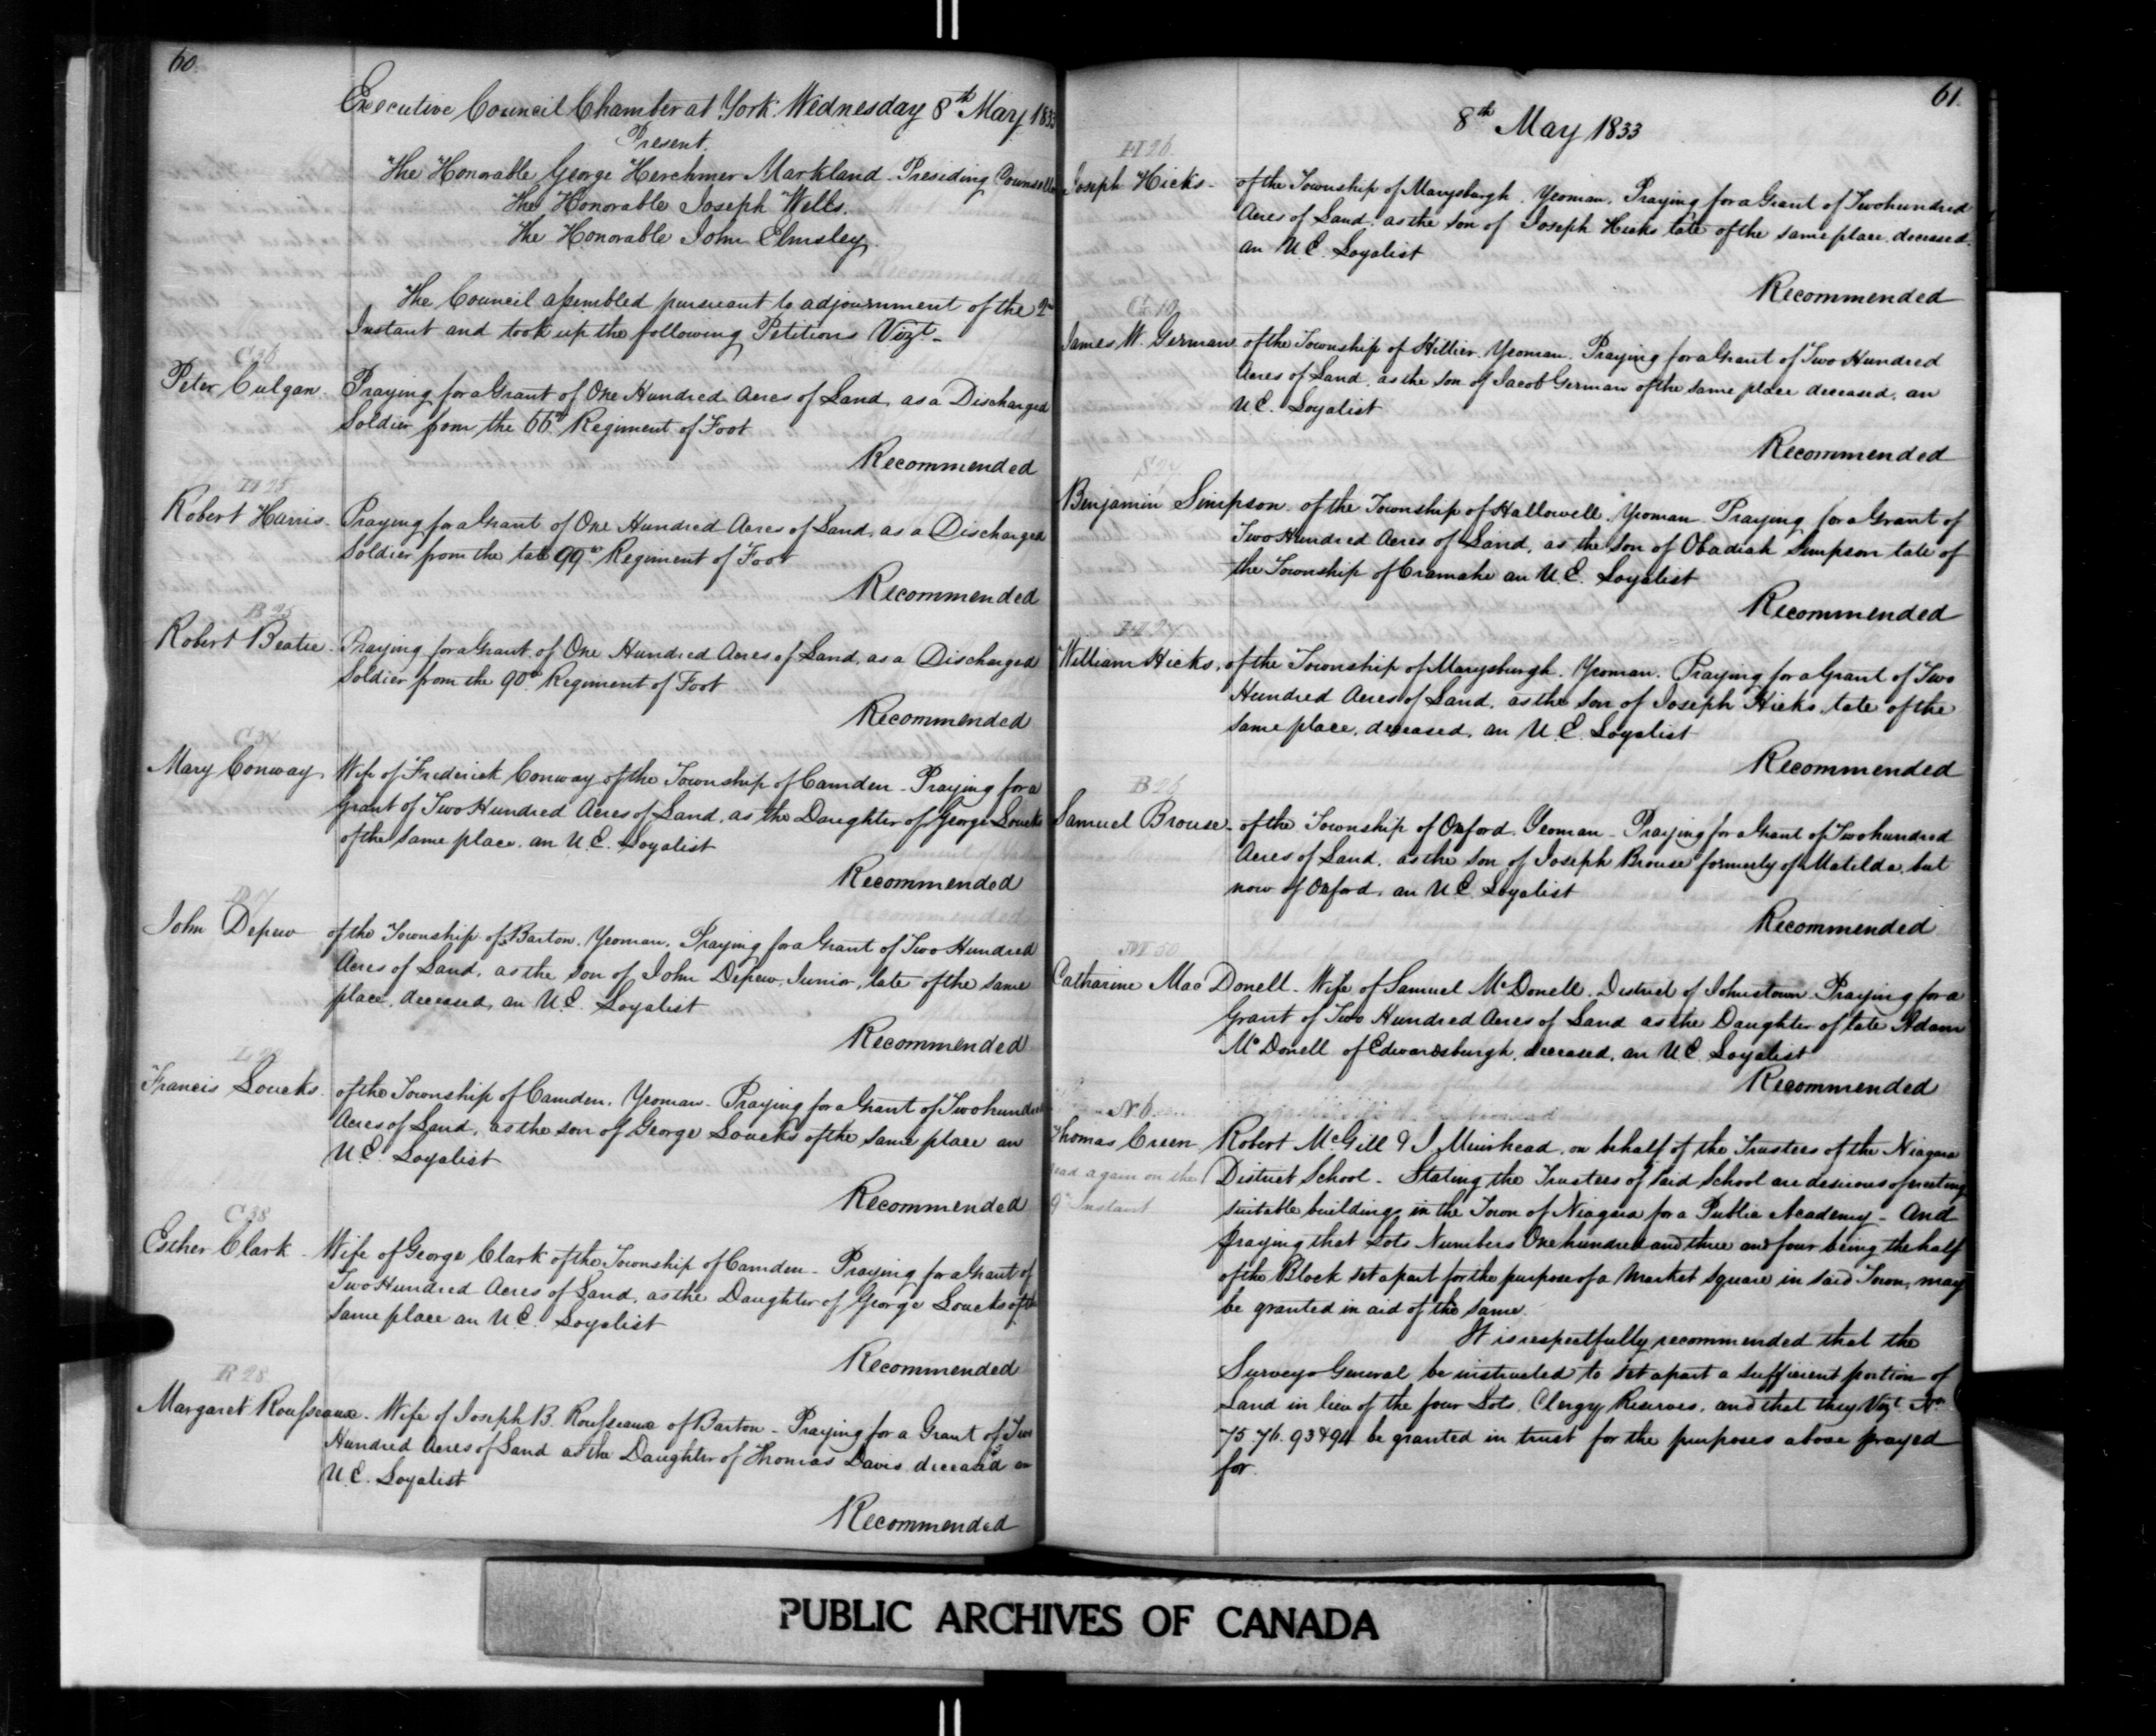 60.
Executive Council Chamber at York Wednesday 8th May 1833
Present.
The Honorable George Herchmer Markland - Presiding Councillor
The Honorable Joseph Wells.
The Honorable John Elmsley.
The Council assembled pursuant to adjournment of the 2nd
Instant and took up the following Petitions Vizt -
C 36
Peter Culgan. Praying for a Grant of One Hundred Acres of Land, as a Discharged
Soldier from the 66th Regiment of Foot
Recommended
H 25
Robert Harris - Praying for a Grant of One Hundred Acres of Land, as a Discharged
Soldier from the late 99th Regiment of Foot
Recommended
B 25
Robert Beatie - Praying for a Grant of One Hundred Acres of Land, as a Discharged
Soldier from the 90th Regiment of Foot
Recommended
Mary Conway, Wife of Frederick Conway of the Township of Camden - Praying for a
Grant of Two Hundred Acres of Land, as the Daughter of George Loucks
of the same place, an U.E. Loyalist
Recommended
John Depew of the Township of Barton, Yeoman. Praying for a Grant of Two Hundred
Acres of Land, as the son of John Depew, Junior, late of the same
place, deceased, an U.E. Loyalist
Recommended
Francis Loucks. of the Township of Camden, Yeoman - Praying for a Grant of Two hundred
Acres of Land, as the son of George Loucks of the same place an
U.E. Loyalist
Recommended
C 38
Esther Clark - Wife of George Clark of the Township of Camden - Praying for a Grant of
Two Hundred Acres of Land, as the Daughter of George Loucks of the
same place an U.E. Loyalist
Recommended
R 28
Margaret Rousseaux - Wife of Joseph B. Rousseaux of Barton - Praying for a Grant of Two
Hundred Acres of Land as the Daughter of Thomas Davis deceased an
U.E. Loyalist
Recommended
61.
8th May 1833
H 26.
Joseph Hicks - of the Township of Marysburgh. Yeoman. Praying for a Grant of Two hundred
Acres of Land, as the son of Joseph Hicks late of the same place, deceased,
an U.E. Loyalist
Recommended
James W. German of the Township of Hillier. Yeoman. Praying for a Grant of Two Hundred
Acres of Land, as the son of Jacob German of the same place deceased, an
U.E. Loyalist
Recommended
Benjamin Simpson of the Township of Hallowell. Yeoman. Praying for a Grant of
Two Hundred Acres of Land, as the Son of Obadiah Simpson late of
the Township of Cramahe an U.E. Loyalist
Recommended
H 27
William Hicks, of the Township of Marysburgh. Yeoman. Praying for a Grant of Two
Hundred Acres of Land, as the son of Joseph Hicks, late of the
same place, deceased, an U.E. Loyalist
Recommended
B 26
Samuel Brouse - of the Township of Oxford. Yeoman - Praying for a Grant of Two hundred
Acres of Land, as the Son of Joseph Brouse formerly of Matilda, but
now of Oxford, an U.E. Loyalist
Recommended
M 50
Catharine Mac Donell - Wife of Samuel McDonell, District of Johnstown. Praying for a
Grant of Two Hundred Acres of Land as the Daughter of late Adam
McDonell of Edwardsburgh, deceased, an U.E. Loyalist
Recommended
N 6.
Thomas Creen, Robert McGill & J. Muirhead, on behalf of the Trustees of the Niagara
read again on the District School - Stating the Trustees of said School are desirous of erecting
9th Instant suitable buildings in the Town of Niagara for a Public Academy - And
praying that Lots Numbers One hundred and three and four being the half
of the Block set apart for the purpose of a Market Square in said Town, may
be granted in aid of the same.
It is respectfully recommended that the
Surveyor General be instructed to set apart a sufficient portion of
Land in lieu of the four Lots, Clergy Reserves, and that they Vizt Nos
75. 76. 93 & 94 be granted in trust for the purposes above prayed
for.
PUBLIC ARCHIVES OF CANADA